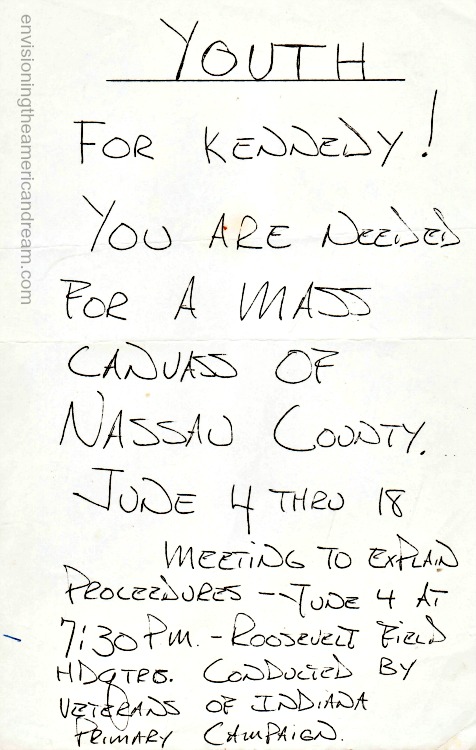 YOUTH
FOR KENNEDY!
YOU ARE NEEDED
FOR A MASS
CANVASS OF
NASSAU COUNTY.
JUNE 4 THRU 18
MEETING TO EXPLAIN
PROCEEDURES -- JUNE 4 AT
7:30 P.M. - ROOSEVELT FIELD
HDQTRS. CONDUCTED BY
VETERANS OF INDIANA
PRIMARY CAMPAIGN.
envisioningtheamericandream.com